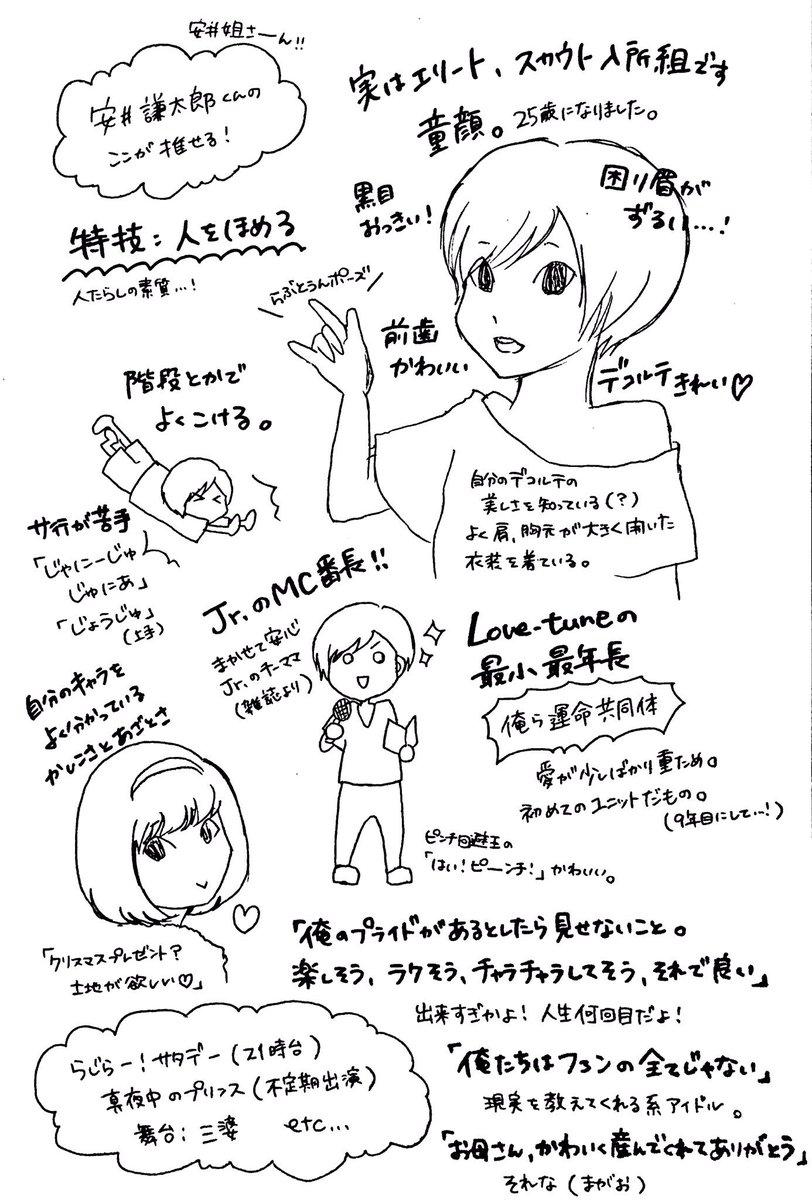 安井姐さーん!!
安井謙太郎くんの
ここが推せる!
実はエリート、スカウト入所組です
童顔。25歳になりました。
黒目
おっきい!
困り眉が
ずるい…!
特技:人をほめる
人たらしの素質…!
らぶとぅんポーズ
前歯
かわいい
デコルテきれい♡
階段とかで
よくこける。
自分のデコルテの
美しさを知っている(?)
よく肩、胸元が大きく開いた
衣装を着ている。
サ行が苦手
「じゃにーじゅ
じゅにあ」
「じょうじゅ」
(上手)
Jr.のMC番長!!
まかせて安心
Jr.のチーママ
(雑誌より)
Love-tuneの
最小最年長
俺ら運命共同体
愛が少しばかり重ため。
初めてのユニットだもの。
(9年目にして…!)
自分のキャラを
よく分かっている
かしこさとあざとさ
ピンチ回避王の
「はい!ピーンチ!」かわいい。
「クリスマスプレゼント?
土地が欲しい♡」
「俺のプライドがあるとしたら見せないこと。
楽しそう、ラクそう、チャラチャラしてそう、それで良い」
出来すぎかよ!人生何回目だよ!
らじらー!サタデー(21時台)
真夜中のプリンス(不定期出演)
舞台:三婆 etc...
「俺たちはファンの全てじゃない」
現実を教えてくれる系アイドル。
「お母さん、かわいく産んでくれてありがとう」
それな(まがお)